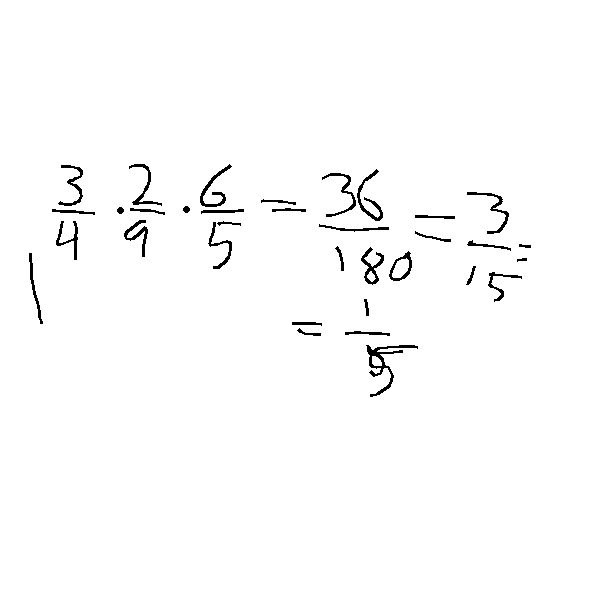 3/4 · 2/9 · 6/5 = 36/180 = 3/15 =
= 1/5